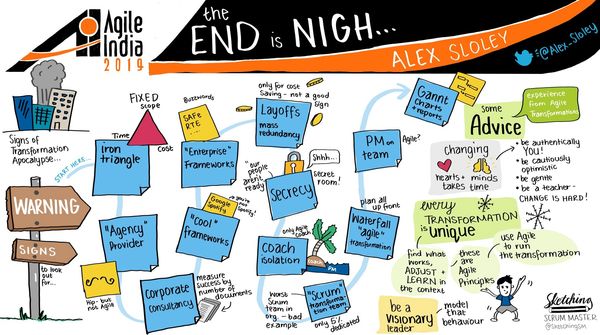 Agile
India
2019
the
END is NIGH...
ALEX SLOLEY
@Alex_Sloley
Signs of
Transformation
Apocalypse...
START HERE...
WARNING
SIGNS
to look
out for...
FIXED
Scope
Time
Cost
Iron
triangle
"Agency"
Provider
Hip - but
not Agile
Corporate
Consultancy
measure
success by
number of
documents
"Cool"
frameworks
Google
Spotify
you're
not
Spotify!
"Enterprise"
Frameworks
Buzzwords
SAFe
RTE...
only for cost
Saving - not a good
sign
Layoffs
mass
redundancy
"our
people
aren't
ready
Shhh...
secret
room!
Secrecy
only Agile
coach
Coach
isolation
COACH
PM
Worst
Scrum team in
org - bad
example
"Scrum"
transforma-
tion team
only 5%
dedicated
Waterfall
"agile"
transformation
plan all
up front
PM on
team
Agile?
Gannt
Charts
+ reports
some
Advice
experience
from Agile
Transformations
changing
hearts + minds
takes time
• be authentically
YOU!
• be cautiously
optimistic
• be gentle
• be a teacher -
CHANGE IS HARD!
every
TRANSFORMATION
is unique
find what
works,
ADJUST +
LEARN in
the context
these
are
Agile
Principles
use Agile
to run
the transformation
be a
visionary
leader
model that
behaviour...
Sketching
SCRUM MASTER
@sketchingsm